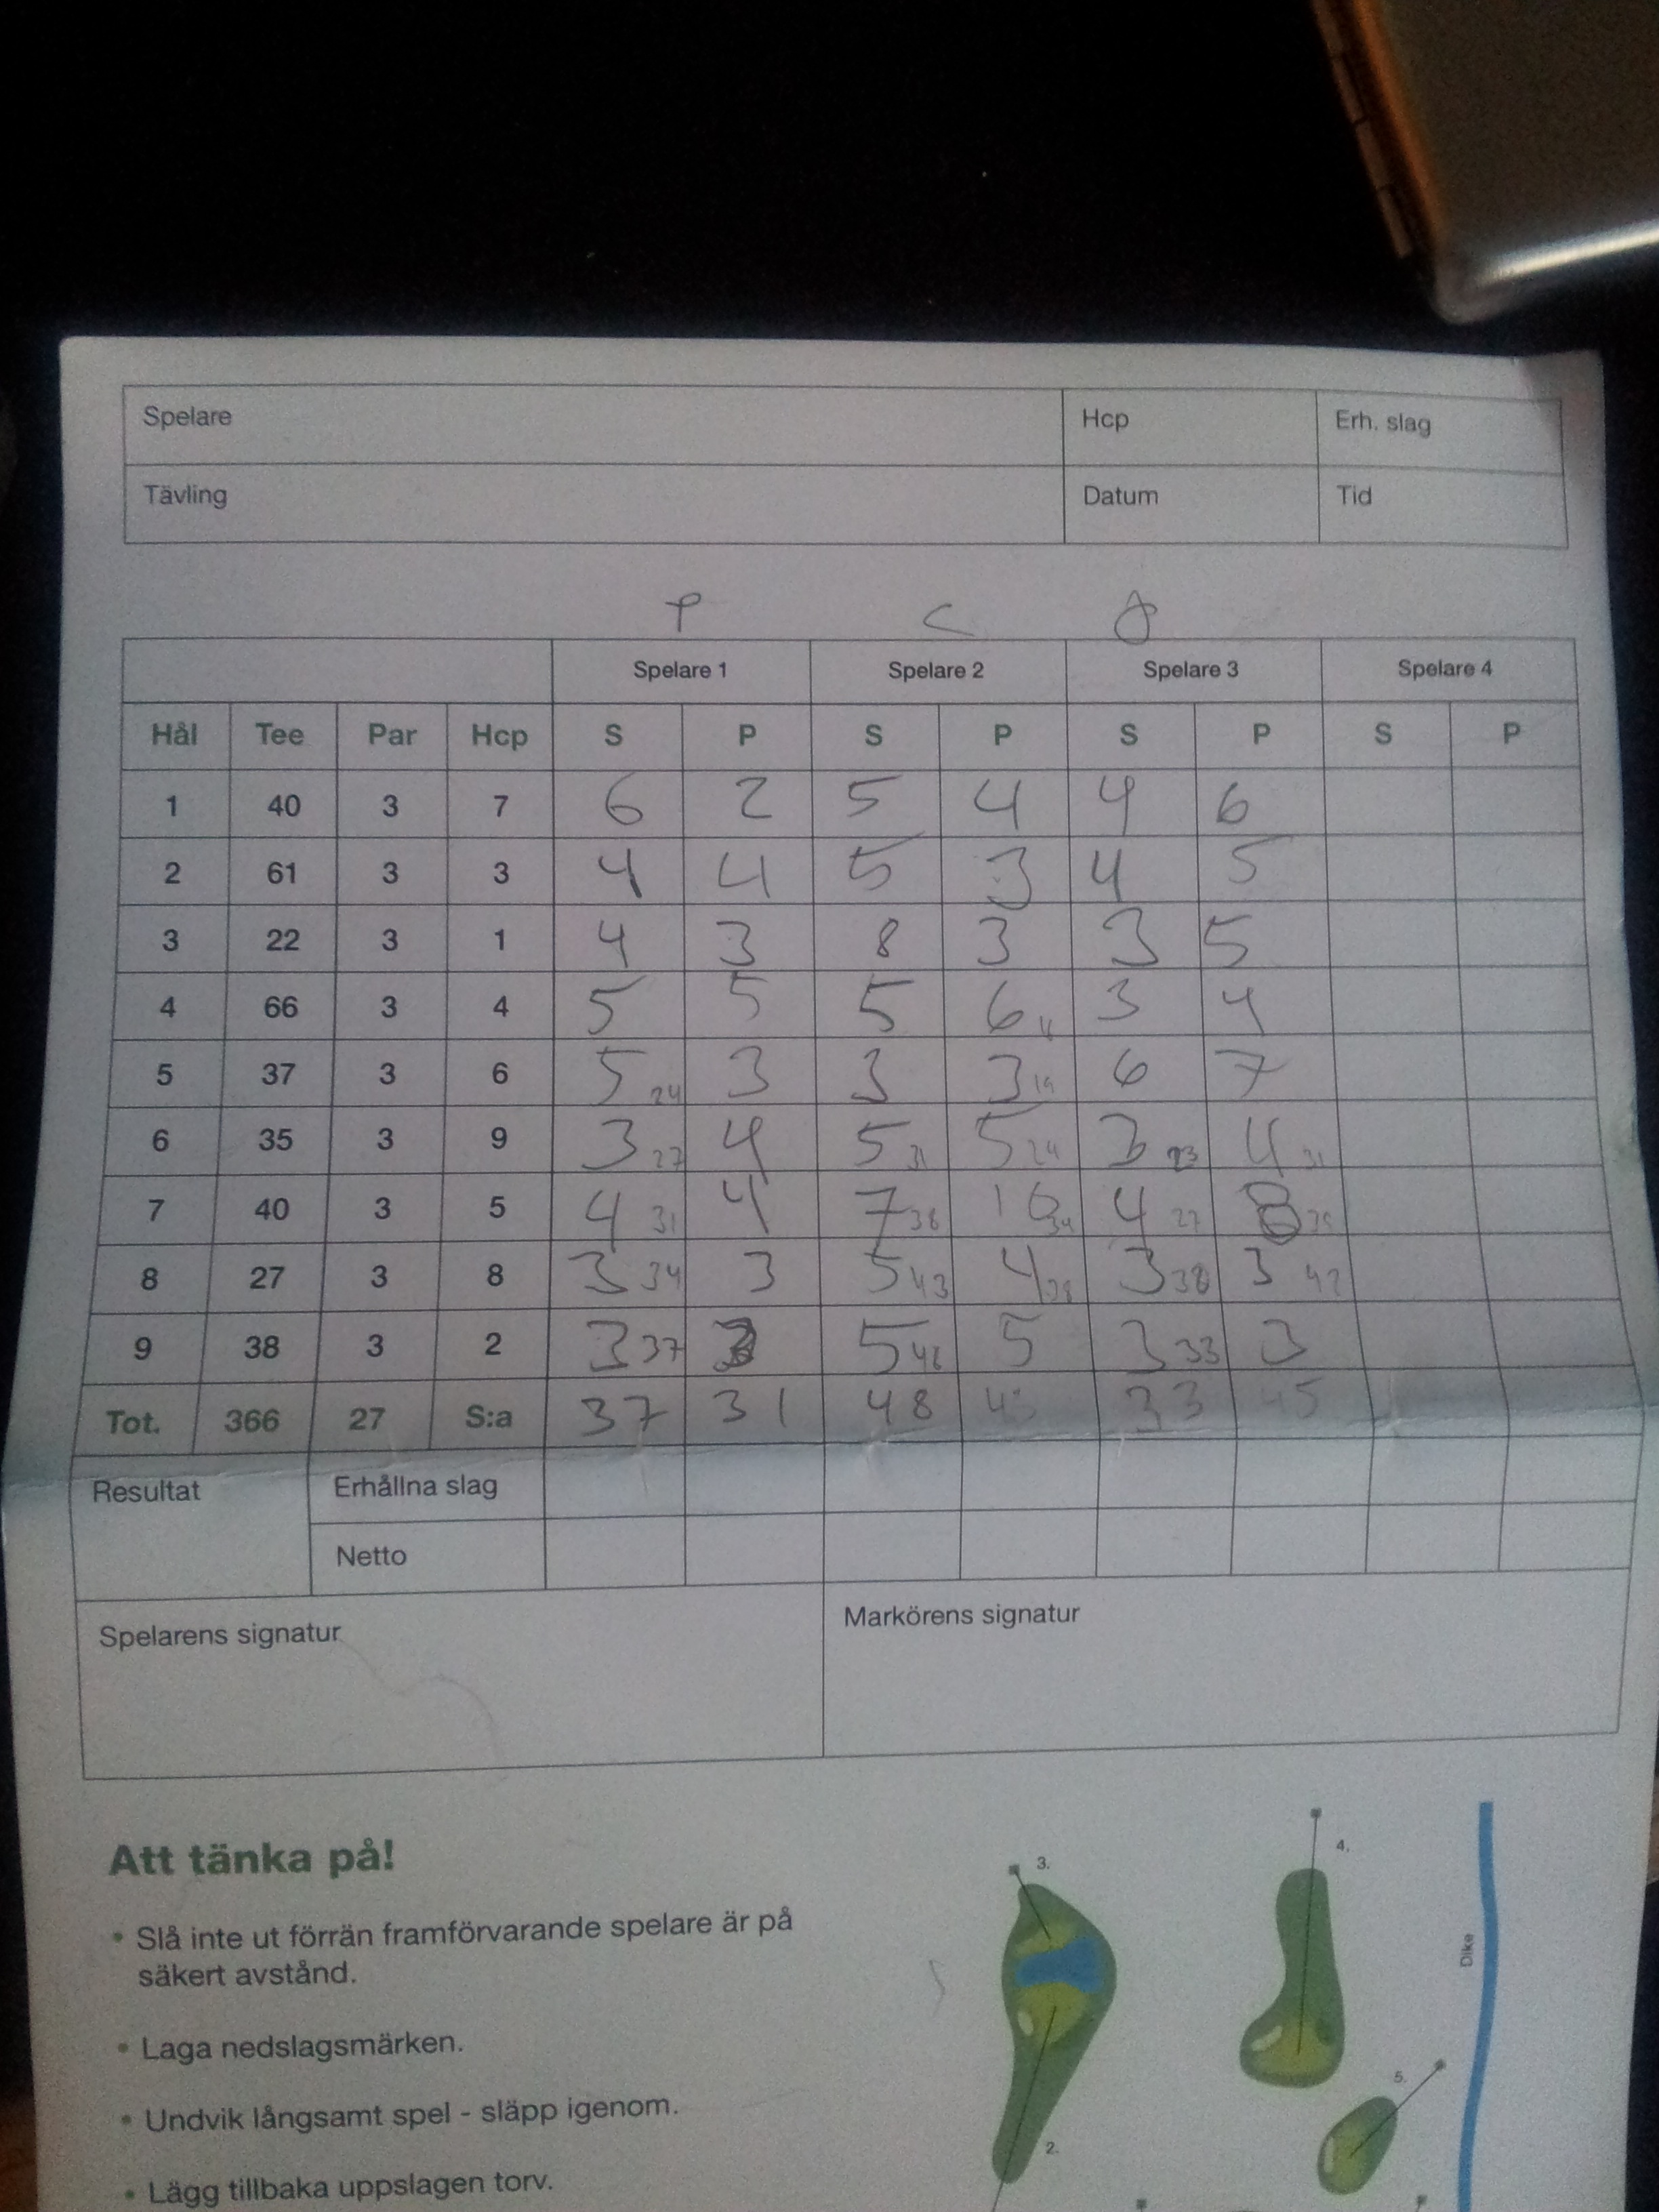 Spelare Hcp Erh. slag
Tävling Datum Tid
P C
Spelare 1 Spelare 2 Spelare 3 Spelare 4
Hål Tee Par Hcp S P S P S P S P
1 40 3 7 6 2 5 4 4 6
2 61 3 3 4 4 5 3 4 5
3 22 3 1 4 3 8 3 3 5
4 66 3 4 5 5 5 6 3 4
5 37 3 6 5 24 3 3 3 19 6 7
6 35 3 9 3 27 4 5 31 5 24 3 23 4 31
7 40 3 5 4 31 4 7 38 10 34 4 27 8 39
8 27 3 8 3 34 3 5 43 4 38 3 38 3 42
9 38 3 2 3 37 3 5 48 5 3 33 3
Tot. 366 27 S:a 37 31 48 43 33 45
Resultat Erhållna slag
Netto
Spelarens signatur Markörens signatur
Att tänka på!
• Slå inte ut förrän framförvarande spelare är på
säkert avstånd.
• Laga nedslagsmärken.
• Undvik långsamt spel - släpp igenom.
• Lägg tillbaka uppslagen torv.
3.
4.
Dike
5.
2.